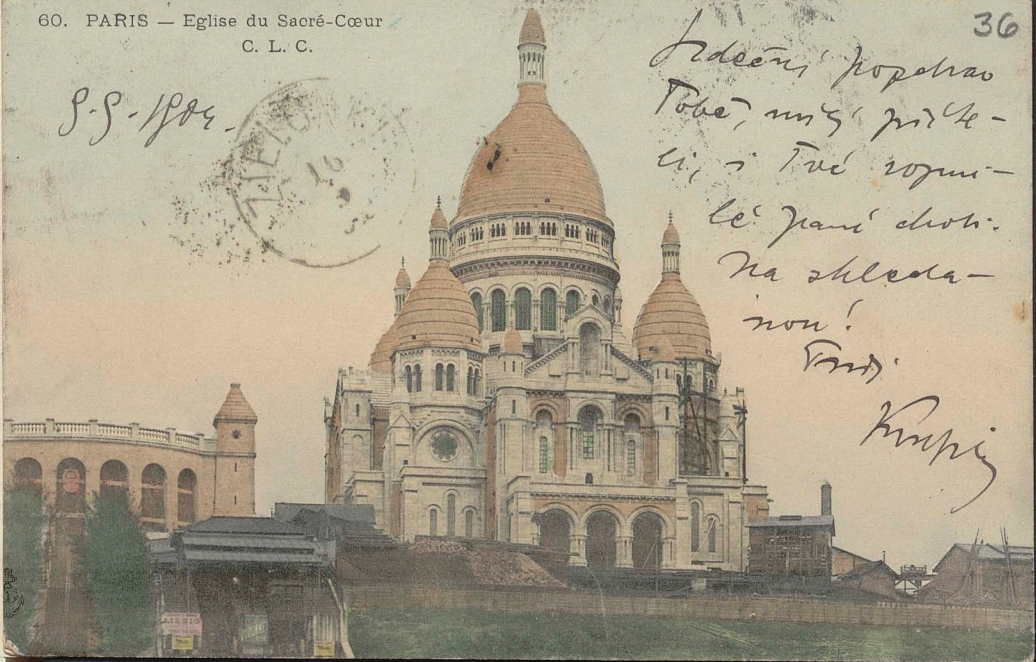 60. PARIS — Eglise du Sacré-Cœur
C. L. C.
36
9.9.1904.
Srdečný pozdrav
Tobě, milý příte-
li, i Tvé rozmi-
lé paní choti.
Na shleda-
nou!
Tvůj